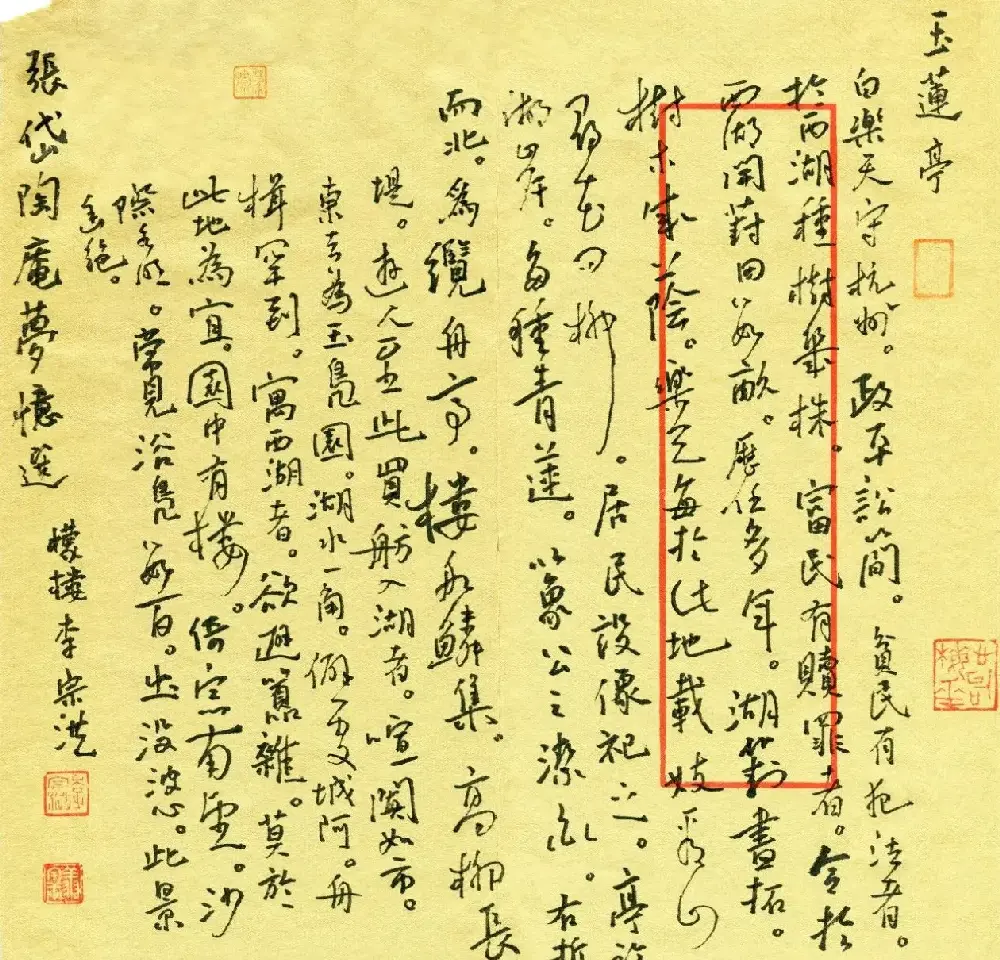 玉蓮亭
白樂天守杭州。政平訟簡。貧民有犯法者。
於西湖種樹幾株。富民有贖罪者。令於
西湖開葑田數畝。歷任多年。湖葑盡拓。
樹木成蔭。樂天每於此地載妓看山
尋花問柳。居民設像祀之。亭臨
湖岸。多種青蓮。以象公之潔白。右折
而北。為纜舟亭。樓船鱗集。高柳長
堤。遊人至此買舫入湖者。喧闐如市。
東去為玉鳧園。湖水一角。僻處城阿。舟
楫罕到。寓西湖者。欲避囂雜。莫於
此地為宜。園中有樓。倚窗南望。沙
際水明。常見浴鳧數百。出沒波心。此景
幽絕。
張岱陶庵夢憶選
李宗洪